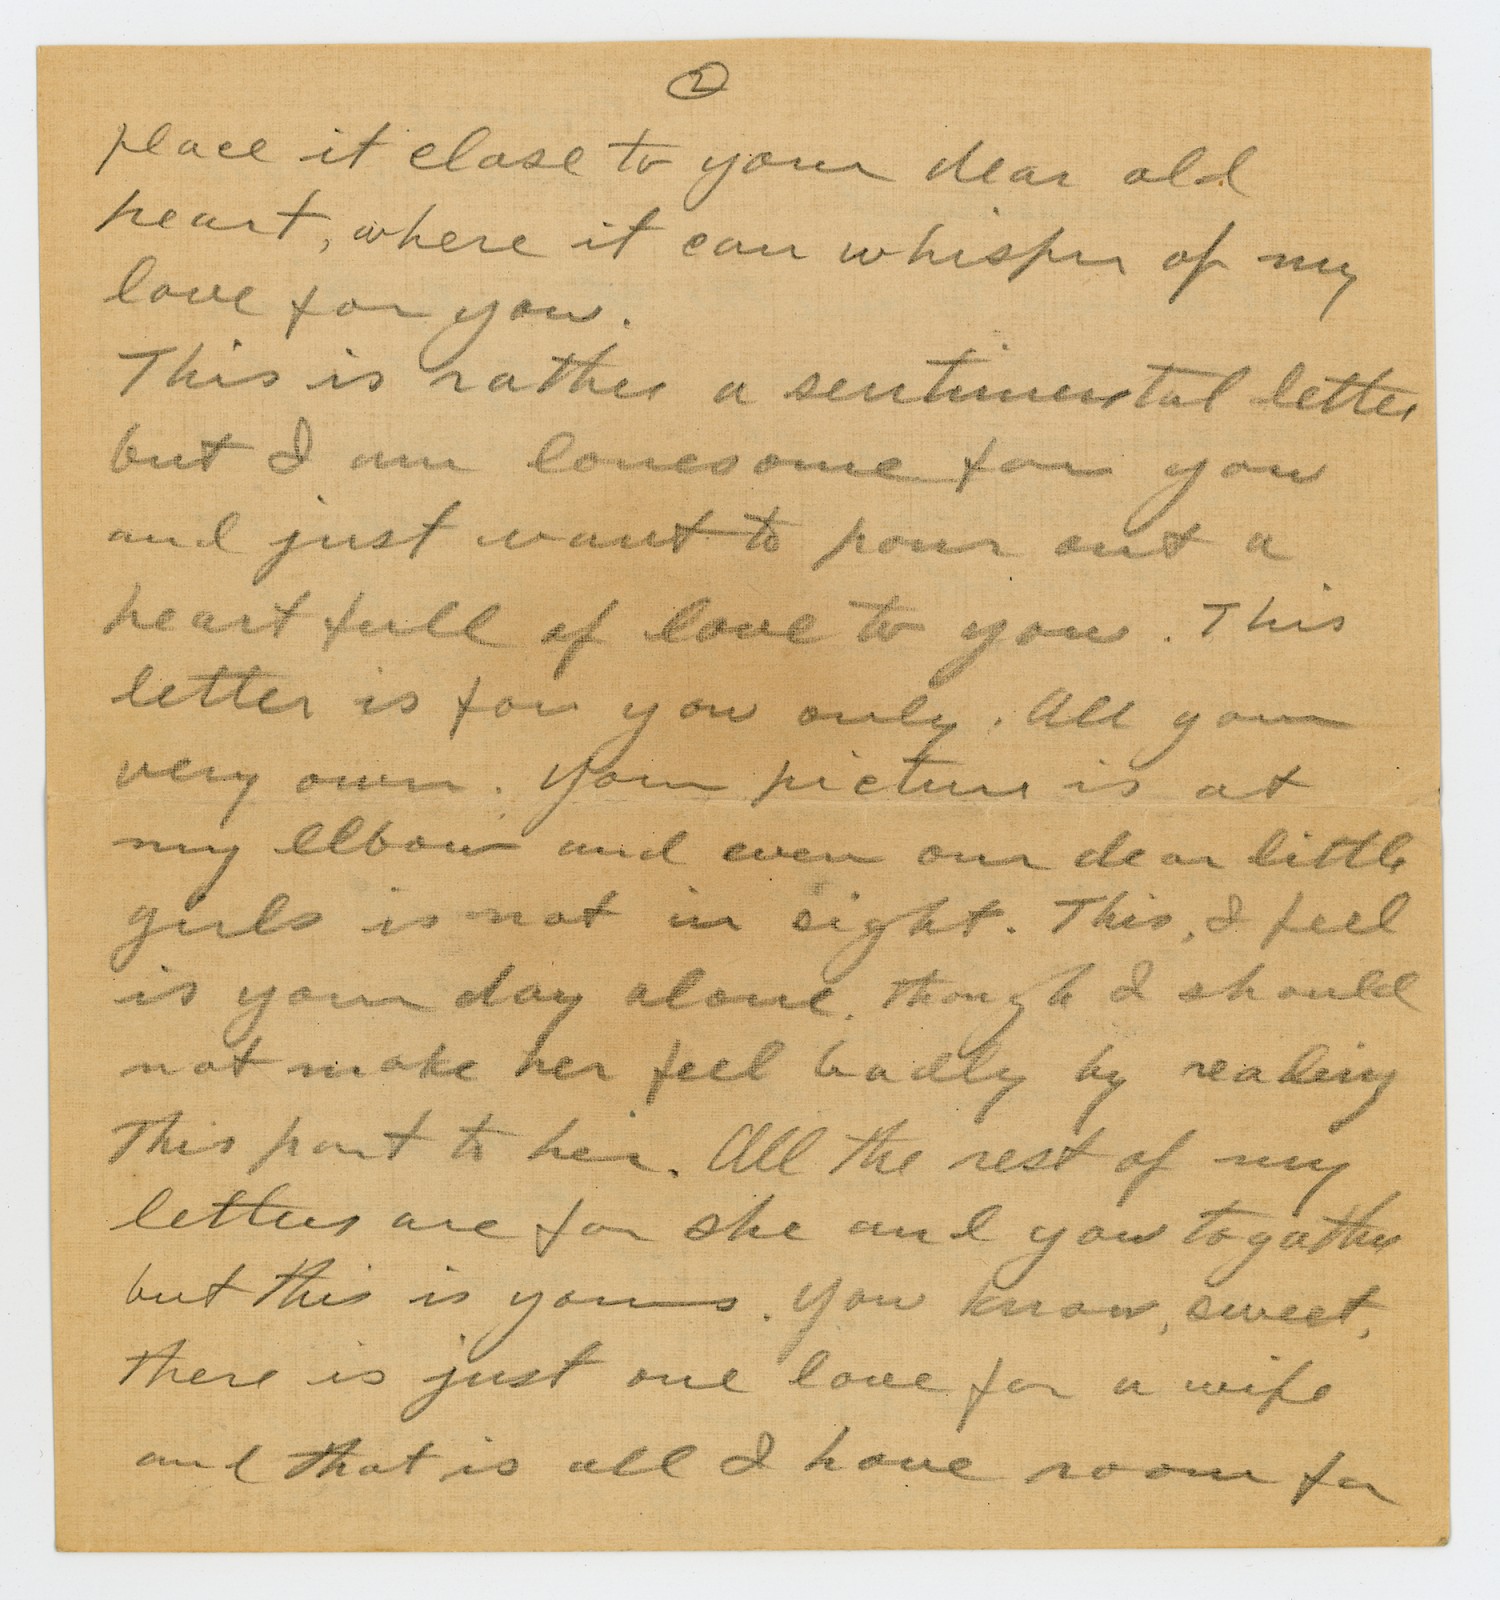 2
place it close to your dear old
heart, where it can whisper of my
love for you.
This is rather a sentimental letter
but I am lonesome for you
and just want to pour out a
heart full of love to you. This
letter is for you only. All your
very own. Your picture is at
my elbow and even our dear little
girls is not in sight. This, I feel
is your day alone. Though I should
not make her feel badly by reading
This part to her. All the rest of my
letters are for she and you togather
but this is yours. You know, sweet,
there is just one love for a wife
and that is all I have room for